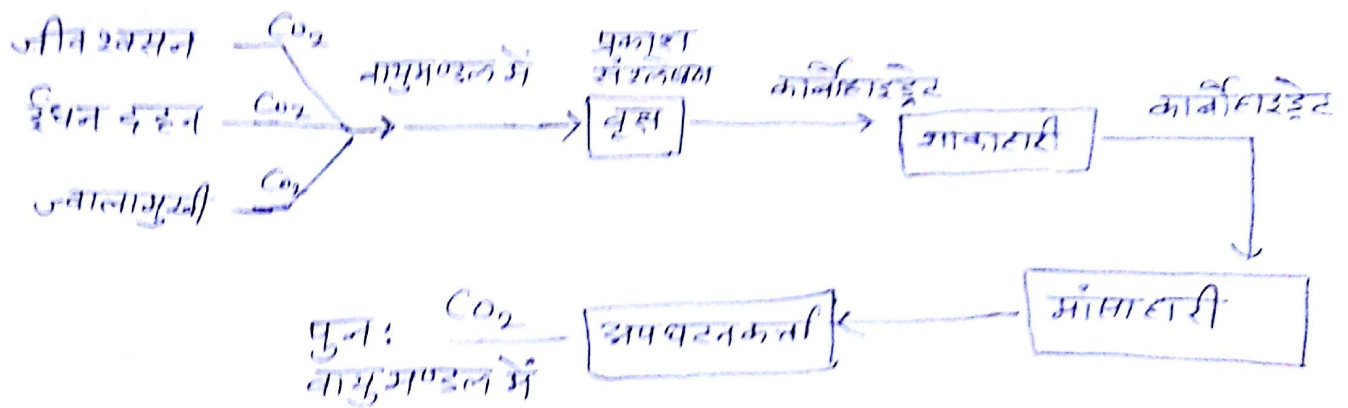 जीव श्वसन
CO2
ईंधन दहन
CO2
ज्वालामुखी
CO2
वायुमण्डल में
प्रकाश
संश्लेषण
वृक्ष
कार्बोहाइड्रेट
शाकाहारी
कार्बोहाइड्रेट
मांसाहारी
अपघटनकर्ता
CO2
पुन:
वायुमण्डल में